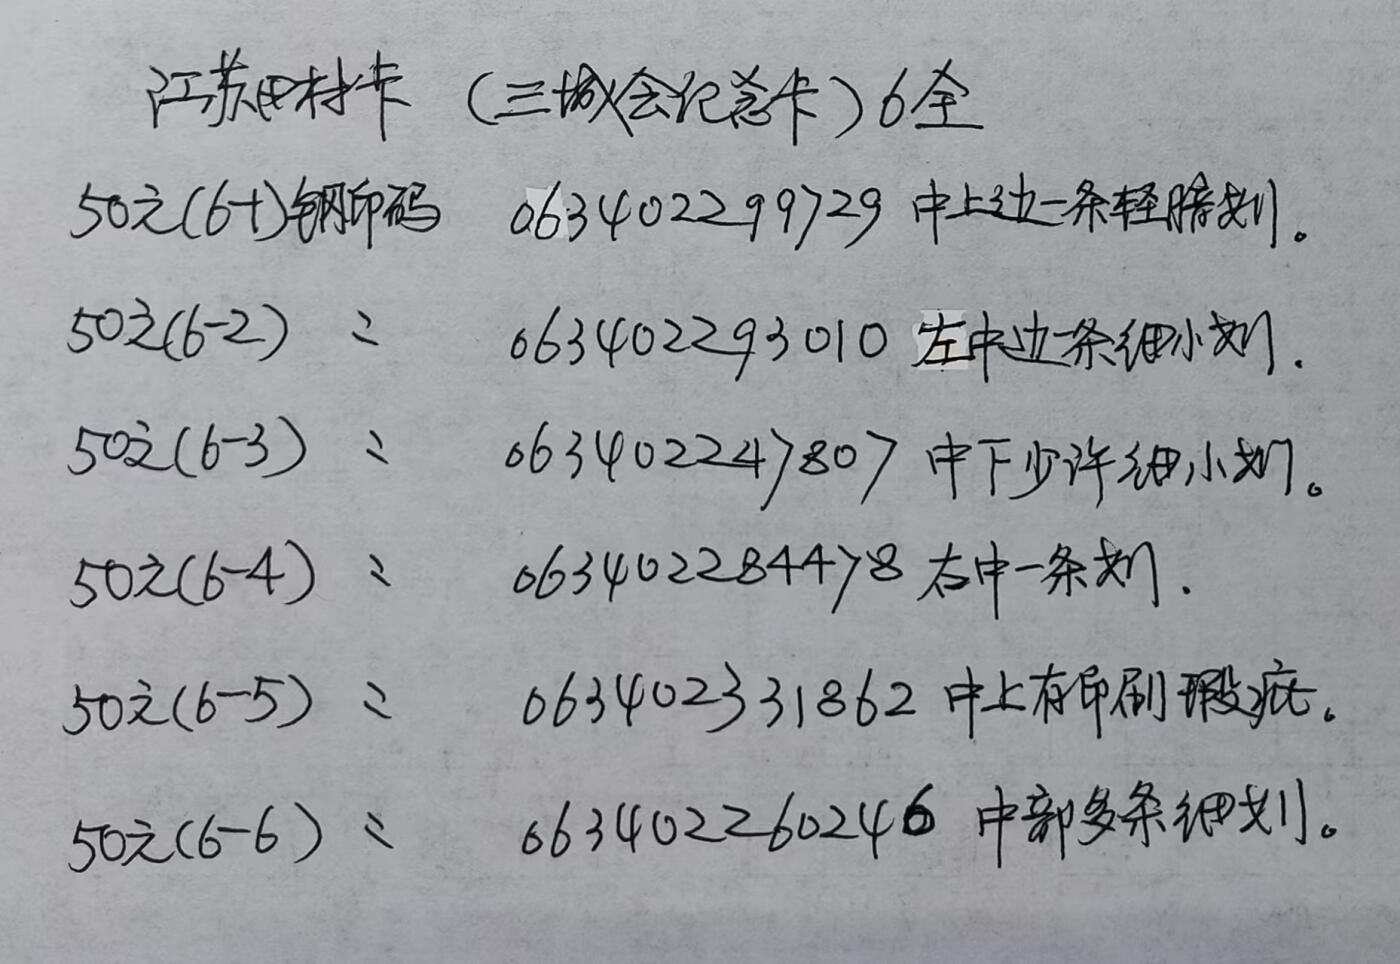 江苏田村卡 (三城会纪念卡) 6全
50元(6-1)钢印码 063402299729 中上边一条轻暗划。
50元(6-2) 〃 063402293010 左中边一条细小划.
50元(6-3) 〃 063402247807 中下少许细小划。
50元(6-4) 〃 063402284478 右中一条划.
50元(6-5) 〃 063402331862 中上有印刷瑕疵。
50元(6-6) 〃 063402260246 中部多条细划。